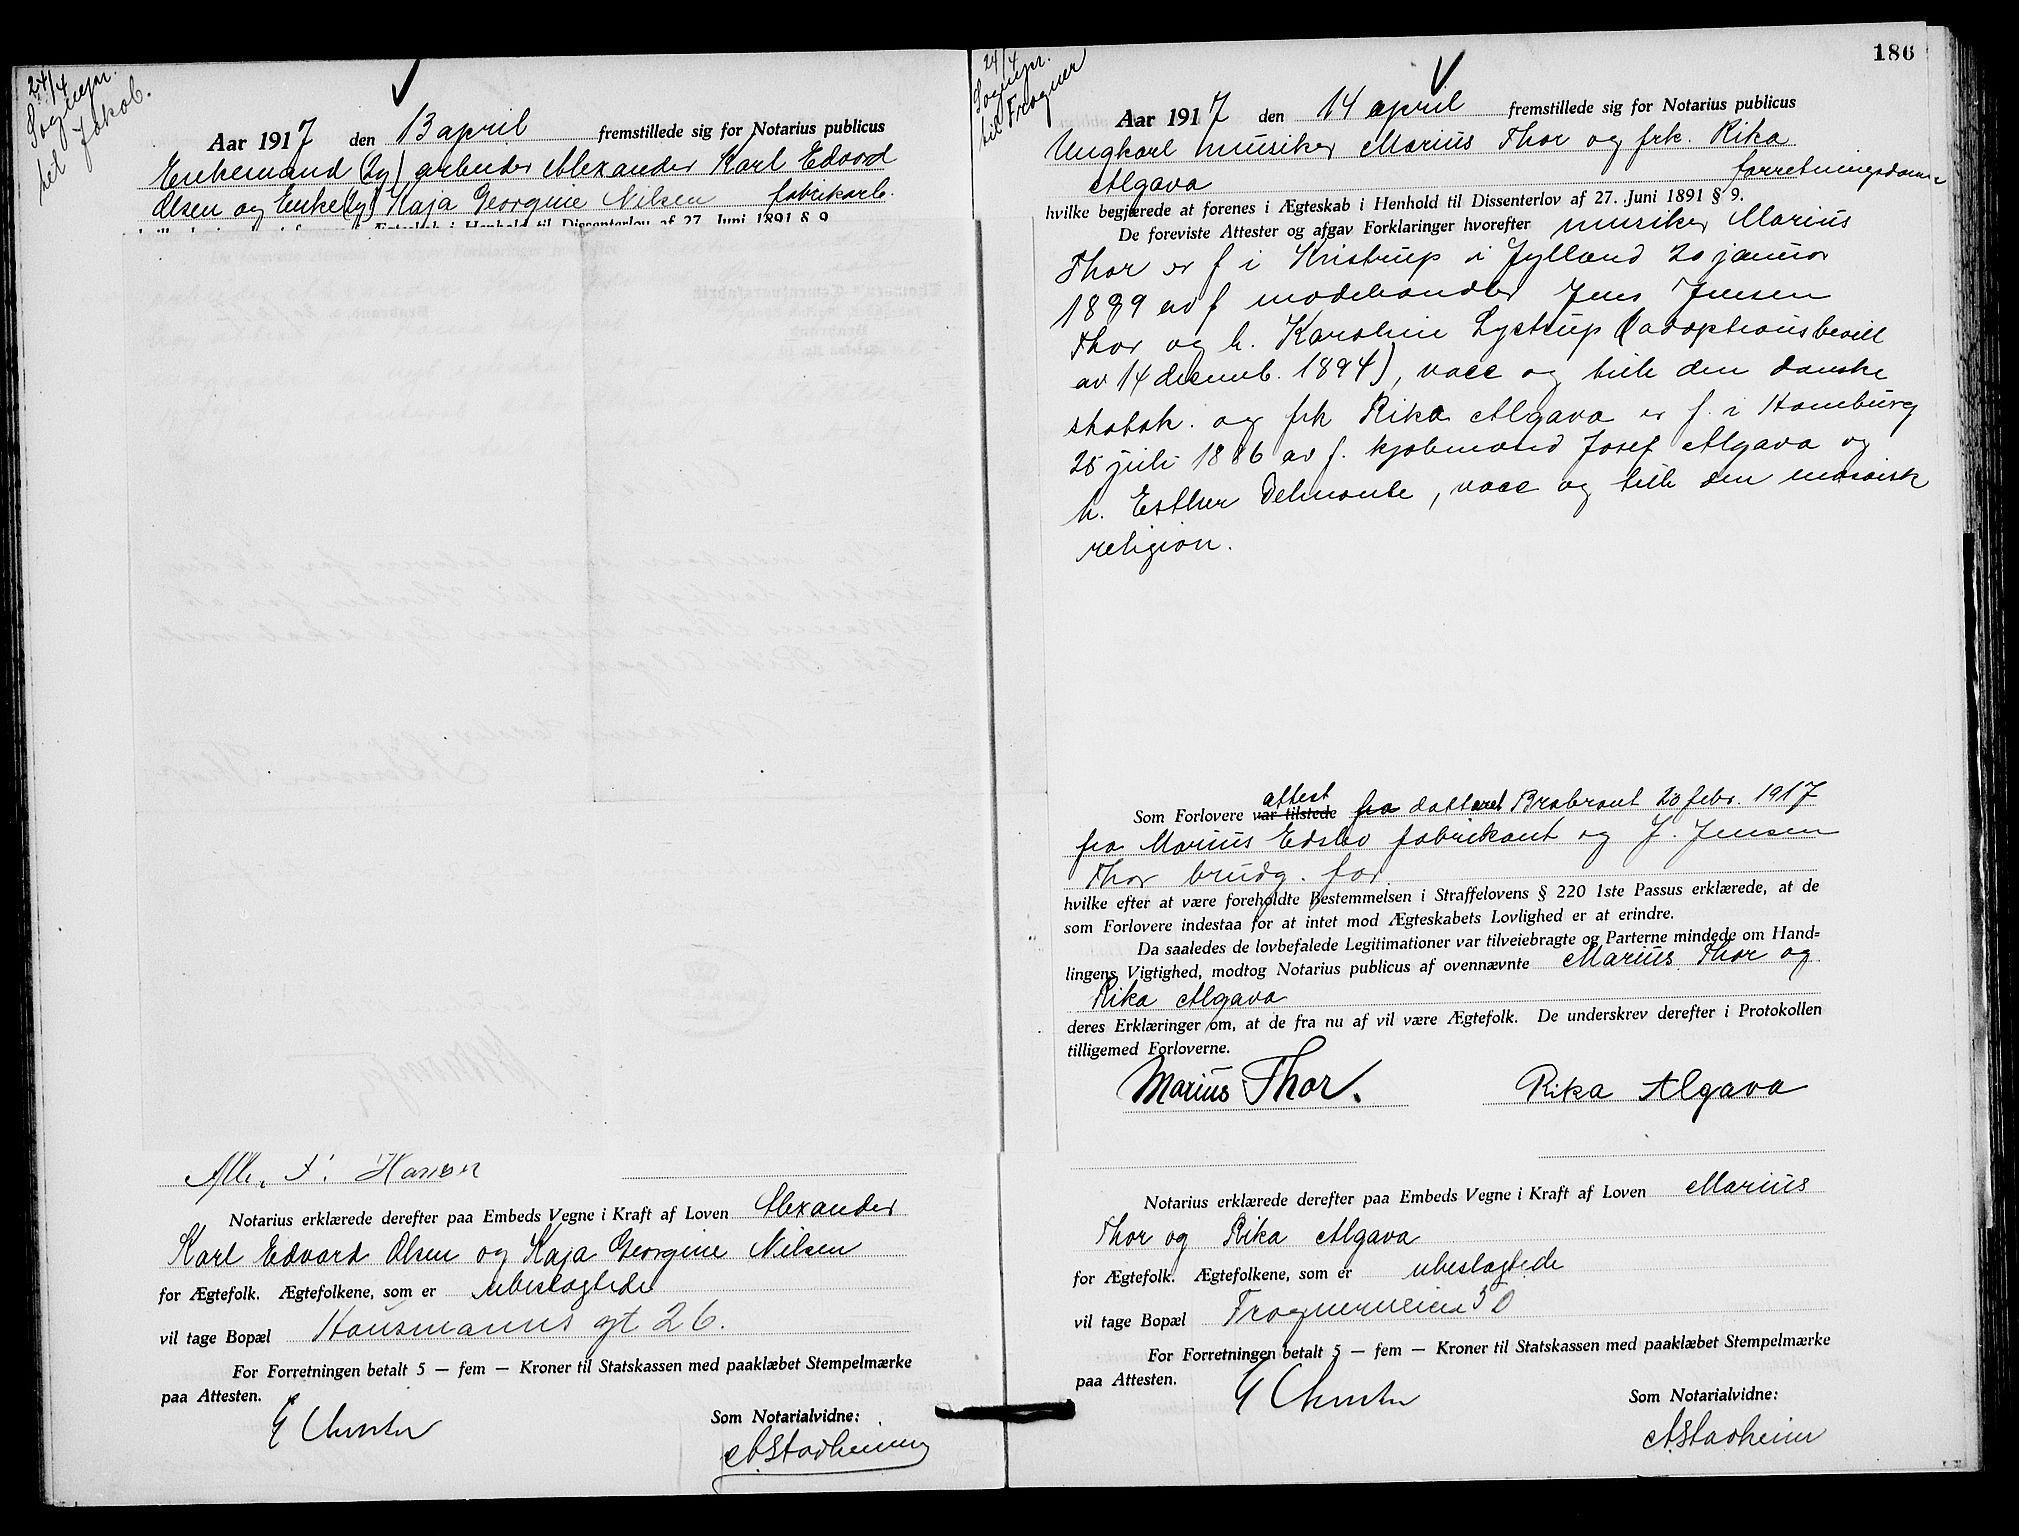 24/4
Sognepr.
til Jakob.
Aar 1917 den 13 april fremstillede sig for Notarius publicus
Enkemand (Ly) arbeider Alexander Karl Edvard
Olsen og Enke (Ly) Kaja Georgine Nilsen fabrikarb.
Alb. F. Hansen
Notarius erklærede derefter paa Embeds Vegne i Kraft af Loven Alexander
Karl Edvard Olsen og Kaja Georgine Nilsen
for Ægtefolk. Ægtefolkene, som er ubeslægtede
vil tage Bopæl Hausmanns gt 26.
For Forretningen betalt 5 — fem — Kroner til Statskassen med paaklæbet Stempelmærke
paa Attesten.
Som Notarialvidne:
A. Stadheim
186
24/4
Sognepr.
til Frogner
Aar 1917 den 14 april fremstillede sig for Notarius publicus
Ungkarl musiker Marius Thor og frk. Rika
Algava forretningsdame
hvilke begjærede at forenes i Ægteskab i Henhold til Dissenterlov af 27. Juni 1891 § 9.
De foreviste Attester og afgav Forklaringer hvorefter musiker Marius
Thor er f i Kristrup i Jylland 20 januar
1889 av f modelhandler Jens Jensen
Thor og h. Karoline Lystrup (adoptionsbevill
av 14 decemb. 1894), vacc og tilh den danske
statsk. og frk Rika Algava er f. i Hamburg
25 juli 1886 av f. kjøbmand Josef Algava og
h. Esther Delmonte, vacc og tilh den mosaisk
religion.
Som Forlovere var tilstede attest fra dateret Brabrant 20 febr. 1917
fra Marius Edslev fabrikant og J. Jensen
Thor brudg. far
hvilke efter at være foreholdte Bestemmelsen i Straffelovens § 220 1ste Passus erklærede, at de
som Forlovere indestaa for at intet mod Ægteskabets Lovlighed er at erindre.
Da saaledes de lovbefalede Legitimationer var tilveiebragte og Parterne mindede om Hand=
lingens Vigtighed, modtog Notarius publicus af ovennævnte Marius Thor og
Rika Algava
deres Erklæringer om, at de fra nu af vil være Ægtefolk. De underskrev derefter i Protokollen
tilligemed Forloverne.
Marius Thor. Rika Algava
Notarius erklærede derefter paa Embeds Vegne i Kraft af Loven Marius
Thor og Rika Algava
for Ægtefolk. Ægtefolkene, som er ubeslægtede
vil tage Bopæl Frognerveien 50
For Forretningen betalt 5 — fem — Kroner til Statskassen med paaklæbet Stempelmærke
paa Attesten.
Som Notarialvidne:
A. Stadheim